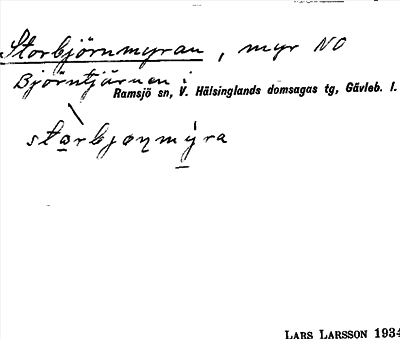 Storbjörnmyran, myr NO
Björntjärnen i
Ramsjö sn, V. Hälsinglands domsagas tg, Gävleb. l.
storbjøṇmýra
LARS LARSSON 1934